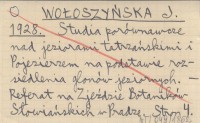 WOŁOSZYŃSKA J.
1928. Studia porównawcze
nad jeziorami tatrzańskiemi i
Pojezierzem na podstawie roz-
siedlenia glonów jeziornych. -
Referat na Zjeździe Botaników
Słowiańskich w Pradze. Stron 4.